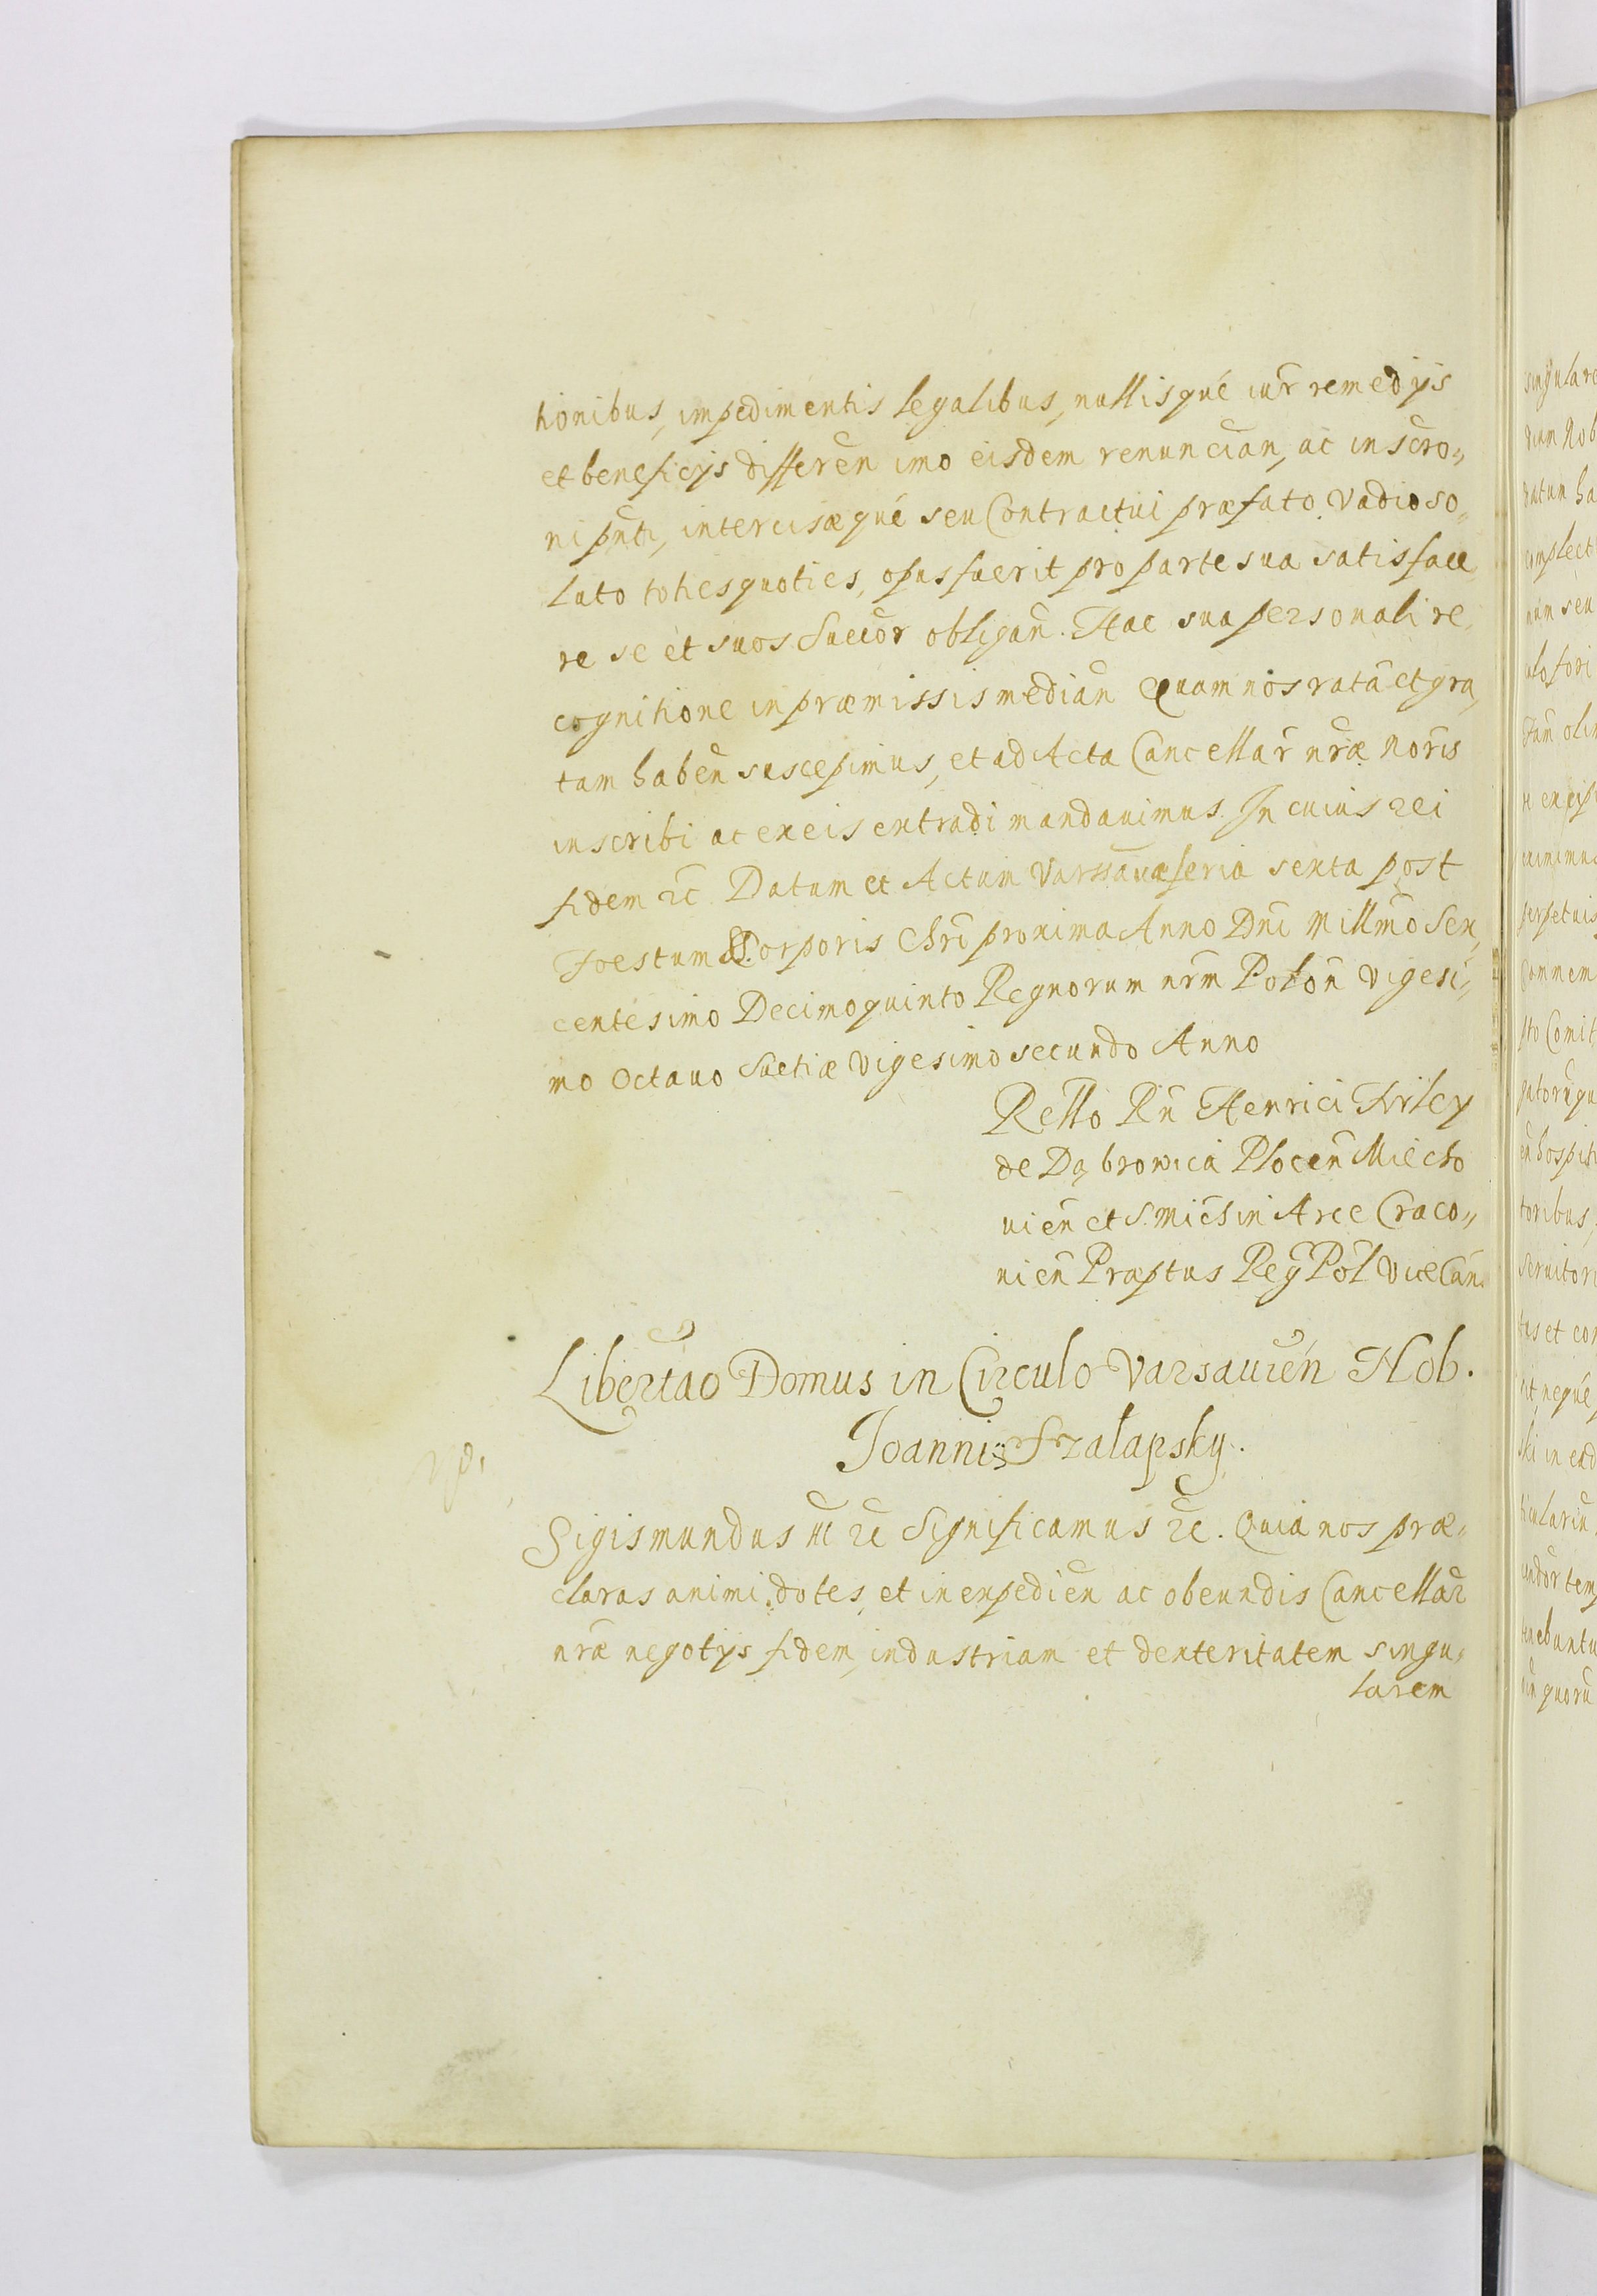 tionibus, impedimentis legalibus, nullisque iur̃ remedijs
et beneficijs differen̄ imo eisdem renuncian̄, ac inscro„
ni pñti, intercisæque seu Contractui præfato vadio so„
luto toties quoties, opus fuerit pro parte sua satisface
re se et suos Succōr obligan̄. Hac sua personali re„
cognitione in præmissis median̄ Quam nos ratā et gra„
tam haben̄ suscepimus, et ad Acta Cancellar̃ nr̃æ Noris
inscribi ac ex eis extradi mandauimus. In cuius rei
fidem ꝛc̃ Datum et Actum Varsauiæ feria sexta post
Foestum Corporis Chrī proxima Anno Dnī Millm̄o Sex„
centesimo Decimoquinto Regnorum nrm̄ Polon̄ Vigesi„
mo Octauo Suetiæ Vigesimo secundo Anno
Rello Rn̄ Henrici Firley
de Dąbrowica Plocen̄ Miecho
uien̄ et S. Mich in Arce Craco„
nien̄ Præptus Reg̃ Pol̃ Vice Can.
Libertao Domus in Circulo Varsauien̄ Nob.
Joannis Szalapsky.
Sigismundus III ꝛc̃ Significamus ꝛc̃. Quia nos præ„
claras animi dotes, et in expedien̄ ac obeundis Cancellar̃
nr̃æ negotijs fidem, industriam et dexteritatem singu„
larem